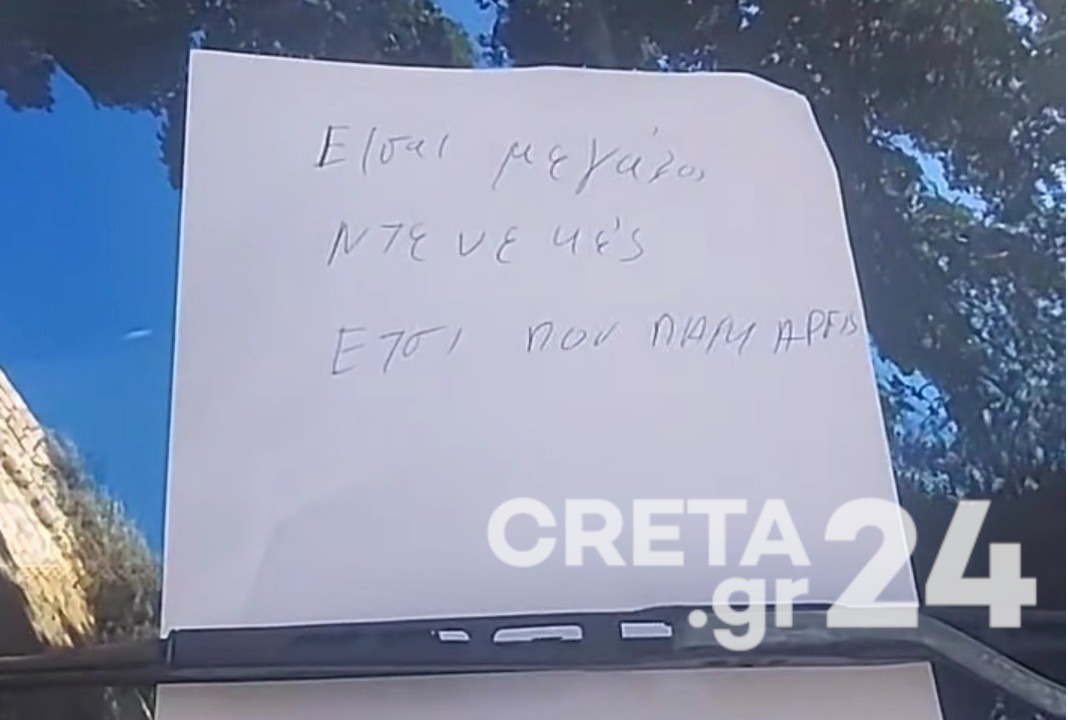 Είσαι μεγάλος
ΝΤΕΝΕκές
ΕΤσι ΠΟΥ ΠΑΡΚΑΡΕΙΣ
CRETA
24
.gr